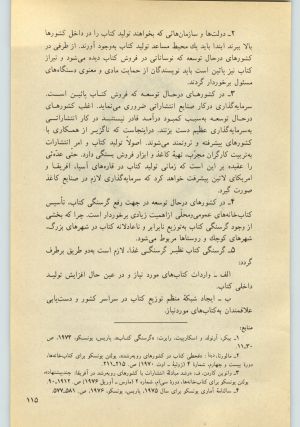 ۲ـ دولت‌ها و سازمان‌هائی که بخواهند تولید کتاب را در داخل کشورها
بالا ببرند ابتدا باید یك محیط مساعد تولید کتاب به‌وجود آورند. از طرفی در
کشورهای درحال توسعه که نوساناتی در فروش کتاب دیده می‌شود و تیراژ
کتاب نیز پائین است باید نویسندگان از حمایت مادی و معنوی دستگاه‌های
مسئول برخوردار گردند.
۳ـ در کشورهای درحال توسعه که فروش کتاب پائین است،
سرمایه‌گذاری درکار صنایع انتشاراتی ضروری می‌نماید. اغلب کشورهای
درحال توسعه به‌سبب کمبود درآمد قادر نیستند در کار انتشاراتی
به‌سرمایه‌گذاری عظیم دست بزنند. دراینجاست که ناگزیر از همکاری با
کشورهای پیشرفته و ثروتمند می‌شوند. اصولاً تولید کتاب و امر انتشارات
به‌تربیت کارگران مجرب، تهیهٔ کاغذ و ابزار فروش بستگی دارد. حتی عده‌ئی
را عقیده بر این است که زمانی تولید کتاب در قاره‌های آسیا، افریقا و
امریکای لاتین پیشرفت خواهد کرد که سرمایه‌گذاری لازم در صنایع کاغذ
صورت گیرد.
۴ـ در کشورهای درحال توسعه در جهت رفع گرسنگی کتاب، تأسیس
کتاب‌خانه‌های عمومی‌ومحلی ازاهمیت زیادی برخوردار است. چرا که بخشی
از وجود گرسنگی کتاب به‌توزیع نابرابر و ناعادلانه کتاب در شهرهای بزرگ،
شهرهای کوچك و روستاها مربوط می‌شود.
۵ـ گرسنگی کتاب نظیر گرسنگی غذا، لازم است به‌دو طریق برطرف
گردد:
الف ـ واردات کتاب‌های مورد نیاز و در عین حال افزایش تولید
داخلی کتاب.
ب ـ ایجاد شبکهٔ منظم توزیع کتاب در سراسر کشور و دست‌یابی
علاقمندان به کتاب‌های‌موردنیاز.
منابع:
۱ـ بیکر، آرنولد، و اسکارپیت، رابرت: «گرسنگی کتاب»، پاریس، یونسکو، ۱۹۷۳، ص
۱۱ـ۳۰.
۲ـ مالورنا، : «قحطی کتاب در کشورهای روبه‌رشد»، بولتن یونسکو برای کتاب‌خانه‌ها،
دورهٔ بیست و چهارم، شماره ۴ (ژوئیه ـ اوت ۱۹۷۰)، ص ۲۱۵ـ۲۱۱.
۳ـ راتوین کاردن، ف: «رشد مبادلهٔ انتشارات با کشورهای روبه‌رشد در آفریقا: چندپیشنهاد»،
بولتن یونسکو برای کتاب‌خانه‌ها، دوره سی‌ام، شماره ۲ (مارس ـ آوریل ۱۹۷۶)، ص
۴ـ سالنامهٔ آماری یونسکو برای سال ۱۹۷۵، پاریس، یونسکو، ۱۹۷۶، ص. ۵۸۱ـ۵۷۷.
۱۱۵